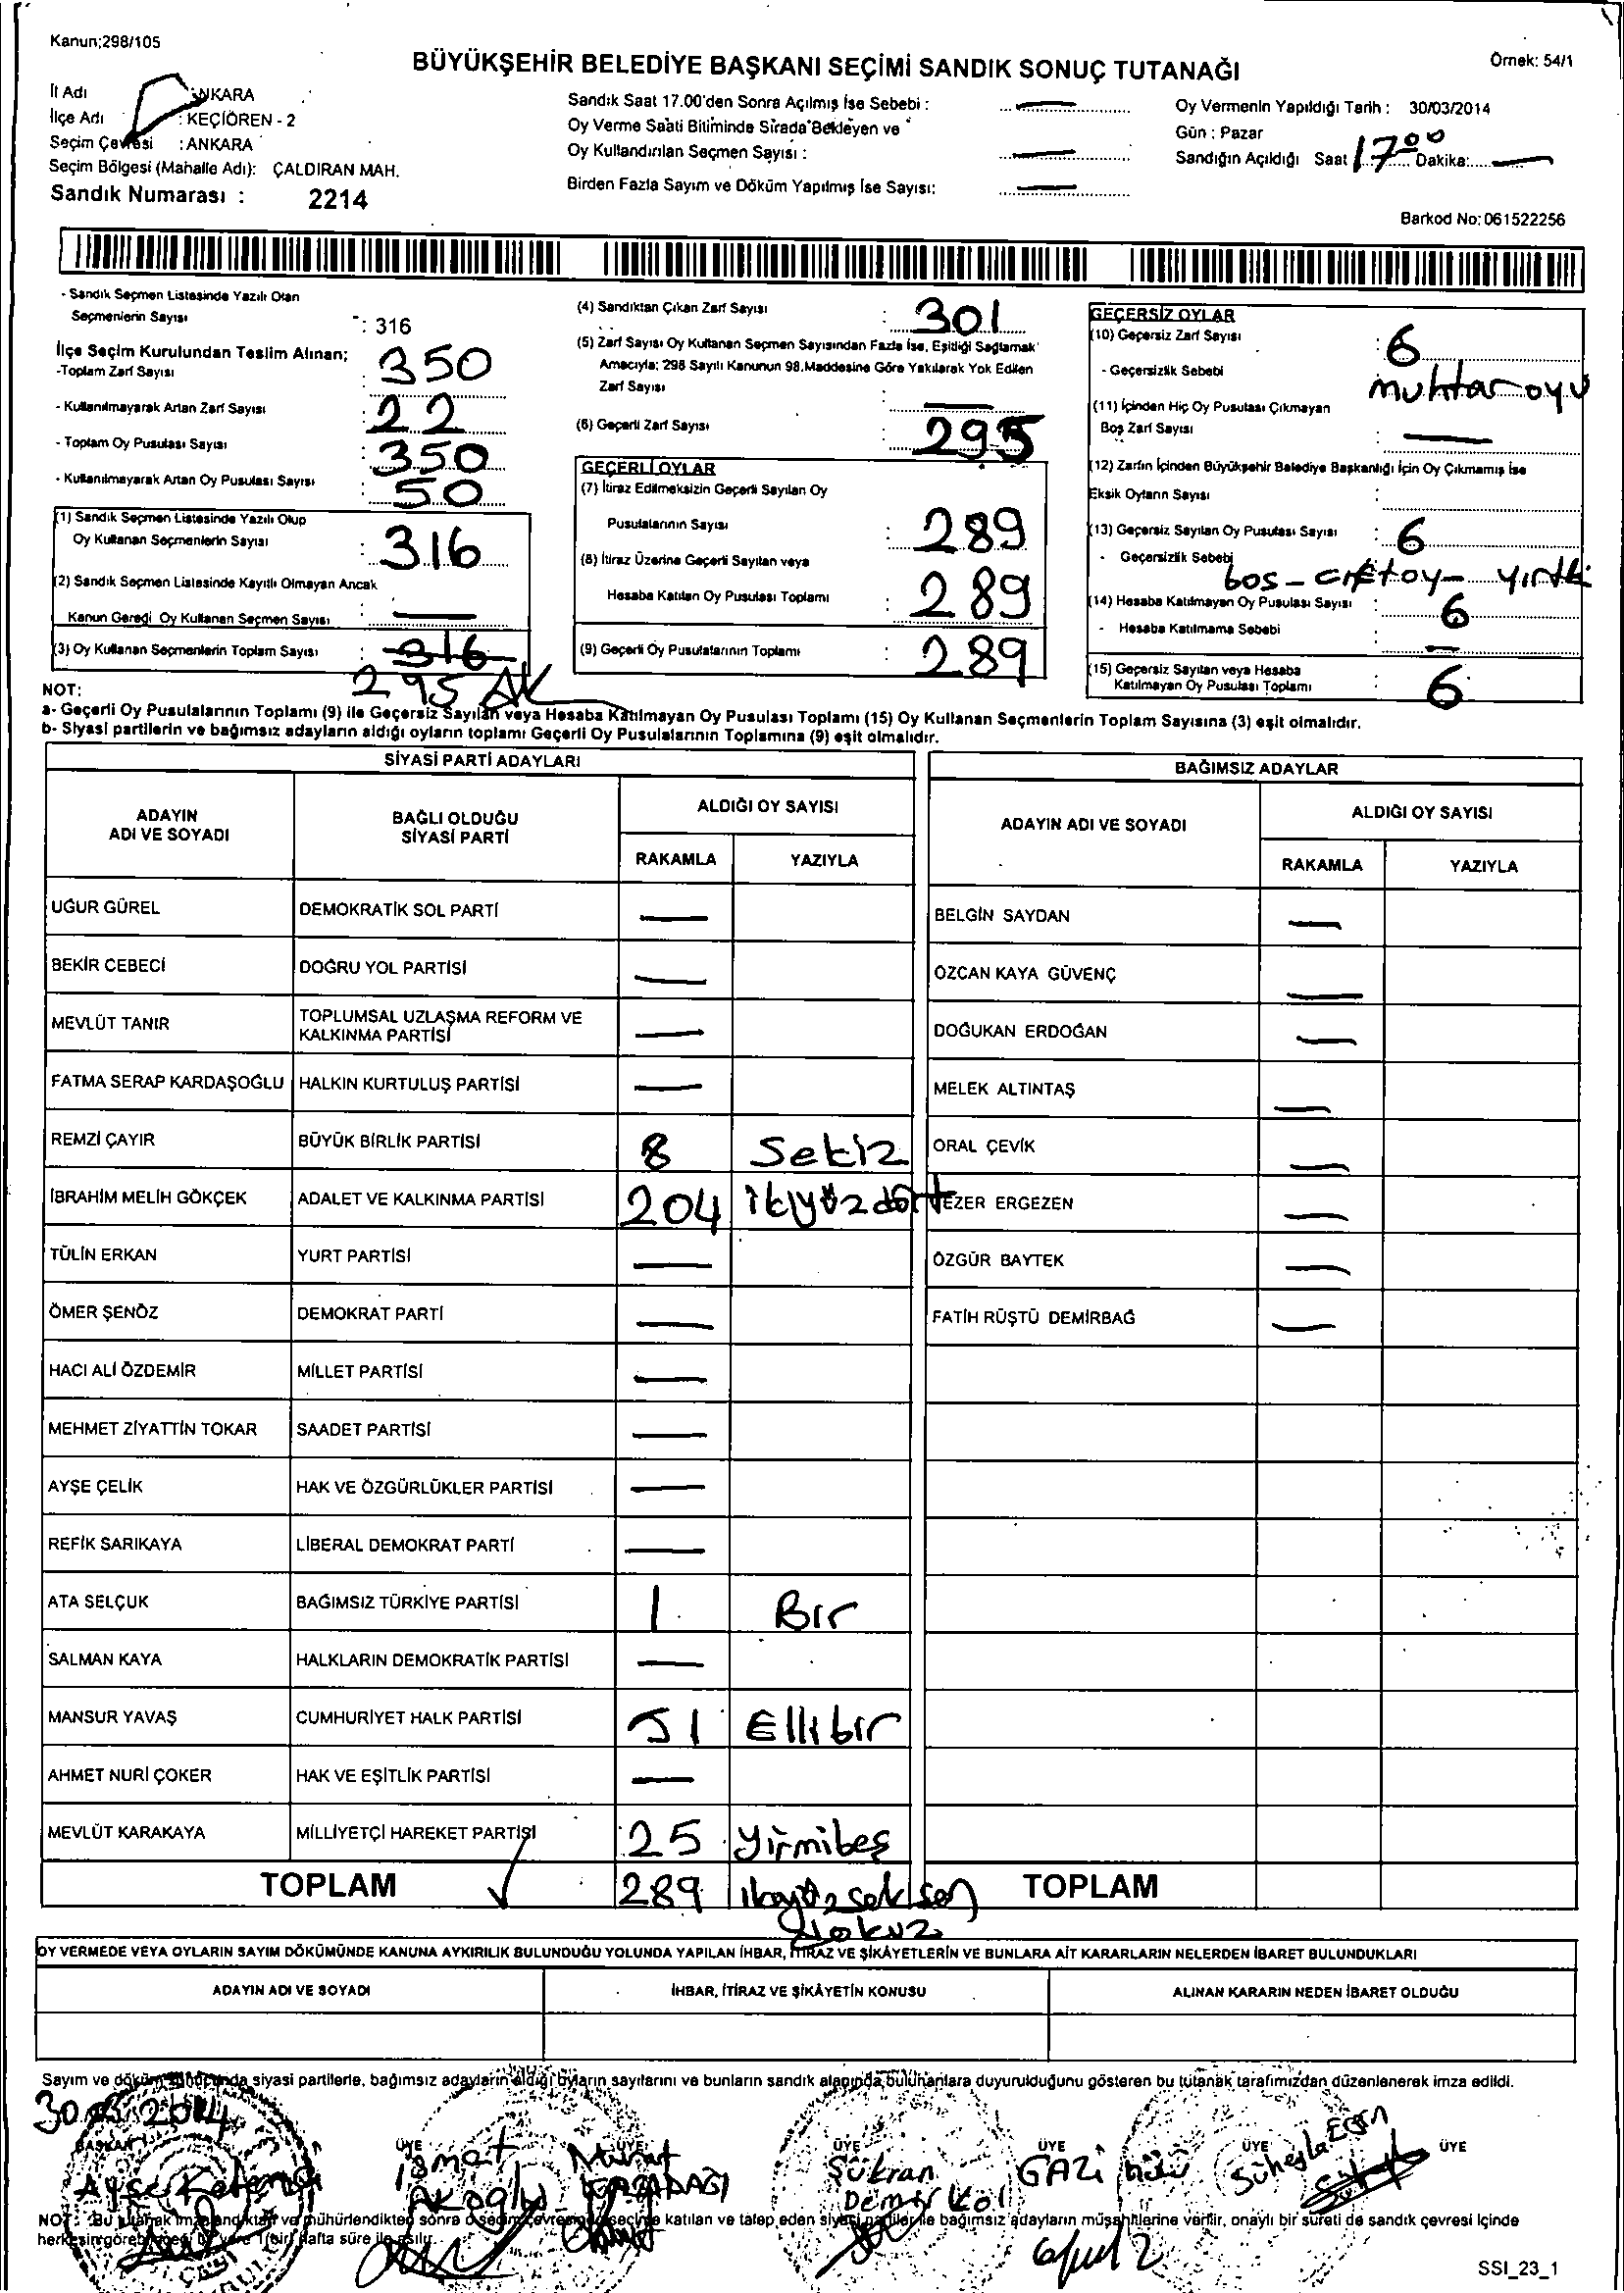 Kanun;298/105
BÜYÜKŞEHİR BELEDİYE BAŞKANI SEÇİMİ SANDIK SONUÇ TUTANAĞI
Örnek: 54/1
İl Adı : ANKARA
İlçe Adı : KEÇİÖREN - 2
Seçim Çevresi : ANKARA
Seçim Bölgesi (Mahalle Adı): ÇALDIRAN MAH.
Sandık Numarası : 2214
Sandık Saat 17.00'den Sonra Açılmış İse Sebebi :
Oy Verme Saati Bitiminde Sırada Bekleyen ve
Oy Kullandırılan Seçmen Sayısı :
Birden Fazla Sayım ve Döküm Yapılmış İse Sayısı:
Oy Vermenin Yapıldığı Tarih : 30/03/2014
Gün : Pazar
Sandığın Açıldığı Saat 17 00 Dakika:
Barkod No: 061522256
- Sandık Seçmen Listesinde Yazılı Olan
Seçmenlerin Sayısı : 316
İlçe Seçim Kurulundan Teslim Alınan;
-Toplam Zarf Sayısı : 350
- Kullanılmayarak Artan Zarf Sayısı : 22
- Toplam Oy Pusulası Sayısı : 350
- Kullanılmayarak Artan Oy Pusulası Sayısı : 50
(1) Sandık Seçmen Listesinde Yazılı Olup
Oy Kullanan Seçmenlerin Sayısı : 316
(2) Sandık Seçmen Listesinde Kayıtlı Olmayan Ancak
Kanun Gereği Oy Kullanan Seçmen Sayısı :
(3) Oy Kullanan Seçmenlerin Toplam Sayısı : 316
295 AK
(4) Sandıktan Çıkan Zarf Sayısı : 301
(5) Zarf Sayısı Oy Kullanan Seçmen Sayısından Fazla İse, Eşitliği Sağlamak
Amacıyla; 298 Sayılı Kanunun 98.Maddesine Göre Yakılarak Yok Edilen
Zarf Sayısı :
(6) Geçerli Zarf Sayısı : 295
GEÇERLİ OYLAR
(7) İtiraz Edilmeksizin Geçerli Sayılan Oy
Pusulalarının Sayısı : 289
(8) İtiraz Üzerine Geçerli Sayılan veya
Hesaba Katılan Oy Pusulası Toplamı : 289
(9) Geçerli Oy Pusulalarının Toplamı : 289
GEÇERSİZ OYLAR
(10) Geçersiz Zarf Sayısı : 6
- Geçersizlik Sebebi muhtar oyu
(11) İçinden Hiç Oy Pusulası Çıkmayan
Boş Zarf Sayısı :
(12) Zarfın İçinden Büyükşehir Belediye Başkanlığı İçin Oy Çıkmamış İse
Eksik Oyların Sayısı :
(13) Geçersiz Sayılan Oy Pusulası Sayısı : 6
- Geçersizlik Sebebi
bos - çift oy - yırtık
(14) Hesaba Katılmayan Oy Pusulası Sayısı : 6
- Hesaba Katılmama Sebebi :
(15) Geçersiz Sayılan veya Hesaba
Katılmayan Oy Pusulası Toplamı : 6
NOT:
a- Geçerli Oy Pusulalarının Toplamı (9) ile Geçersiz Sayılan veya Hesaba Katılmayan Oy Pusulası Toplamı (15) Oy Kullanan Seçmenlerin Toplam Sayısına (3) eşit olmalıdır.
b- Siyasi partilerin ve bağımsız adayların aldığı oyların toplamı Geçerli Oy Pusulalarının Toplamına (9) eşit olmalıdır.
SİYASİ PARTİ ADAYLARI
ADAYIN ADI VE SOYADI
BAĞLI OLDUĞU SİYASİ PARTİ
ALDIĞI OY SAYISI
RAKAMLA YAZIYLA
UĞUR GÜREL DEMOKRATİK SOL PARTİ
BEKİR CEBECİ DOĞRU YOL PARTİSİ
MEVLÜT TANIR TOPLUMSAL UZLAŞMA REFORM VE KALKINMA PARTİSİ
FATMA SERAP KARDAŞOĞLU HALKIN KURTULUŞ PARTİSİ
REMZİ ÇAYIR BÜYÜK BİRLİK PARTİSİ 8 Sekiz
İBRAHİM MELİH GÖKÇEK ADALET VE KALKINMA PARTİSİ 204 ikiyüzdört
TÜLİN ERKAN YURT PARTİSİ
ÖMER ŞENÖZ DEMOKRAT PARTİ
HACI ALİ ÖZDEMİR MİLLET PARTİSİ
MEHMET ZİYATTİN TOKAR SAADET PARTİSİ
AYŞE ÇELİK HAK VE ÖZGÜRLÜKLER PARTİSİ
REFİK SARIKAYA LİBERAL DEMOKRAT PARTİ
ATA SELÇUK BAĞIMSIZ TÜRKİYE PARTİSİ 1 Bir
SALMAN KAYA HALKLARIN DEMOKRATİK PARTİSİ
MANSUR YAVAŞ CUMHURİYET HALK PARTİSİ 51 Ellibir
AHMET NURİ ÇOKER HAK VE EŞİTLİK PARTİSİ
MEVLÜT KARAKAYA MİLLİYETÇİ HAREKET PARTİSİ 25 Yirmibeş
TOPLAM 289 ikiyüzseksen
dokuz
BAĞIMSIZ ADAYLAR
ADAYIN ADI VE SOYADI
ALDIĞI OY SAYISI
RAKAMLA YAZIYLA
BELGİN SAYDAN
ÖZCAN KAYA GÜVENÇ
DOĞUKAN ERDOĞAN
MELEK ALTINTAŞ
ORAL ÇEVİK
EZER ERGEZEN
ÖZGÜR BAYTEK
FATİH RÜŞTÜ DEMİRBAĞ
TOPLAM
OY VERMEDE VEYA OYLARIN SAYIM DÖKÜMÜNDE KANUNA AYKIRILIK BULUNDUĞU YOLUNDA YAPILAN İHBAR, İTİRAZ VE ŞİKÂYETLERİN VE BUNLARA AİT KARARLARIN NELERDEN İBARET BULUNDUKLARI
ADAYIN ADI VE SOYADI
İHBAR, İTİRAZ VE ŞİKÂYETİN KONUSU
ALINAN KARARIN NEDEN İBARET OLDUĞU
Sayım ve döküm sonucunda siyasi partilerle, bağımsız adayların aldığı oyların sayılarını ve bunların sandık alanında bulunanlara duyurulduğunu gösteren bu tutanak tarafımızdan düzenlenerek imza edildi.
30.03.2014
BAŞKAN ÜYE ÜYE ÜYE ÜYE ÜYE ÜYE
Ayşe
ismet Akoğlu
Murat KARADAĞI
Şükran Demirkol
GAZi
Süheyla
NOT: Bu tutanak imzalandıktan ve mühürlendikten sonra o seçim çevresinde seçime katılan ve talep eden siyasi partiler ile bağımsız adayların müşahitlerine verilir, onaylı bir sureti de sandık çevresi içinde
herkesin görebileceği bir yere 1 (bir) hafta süre ile asılır.
SSI_23_1